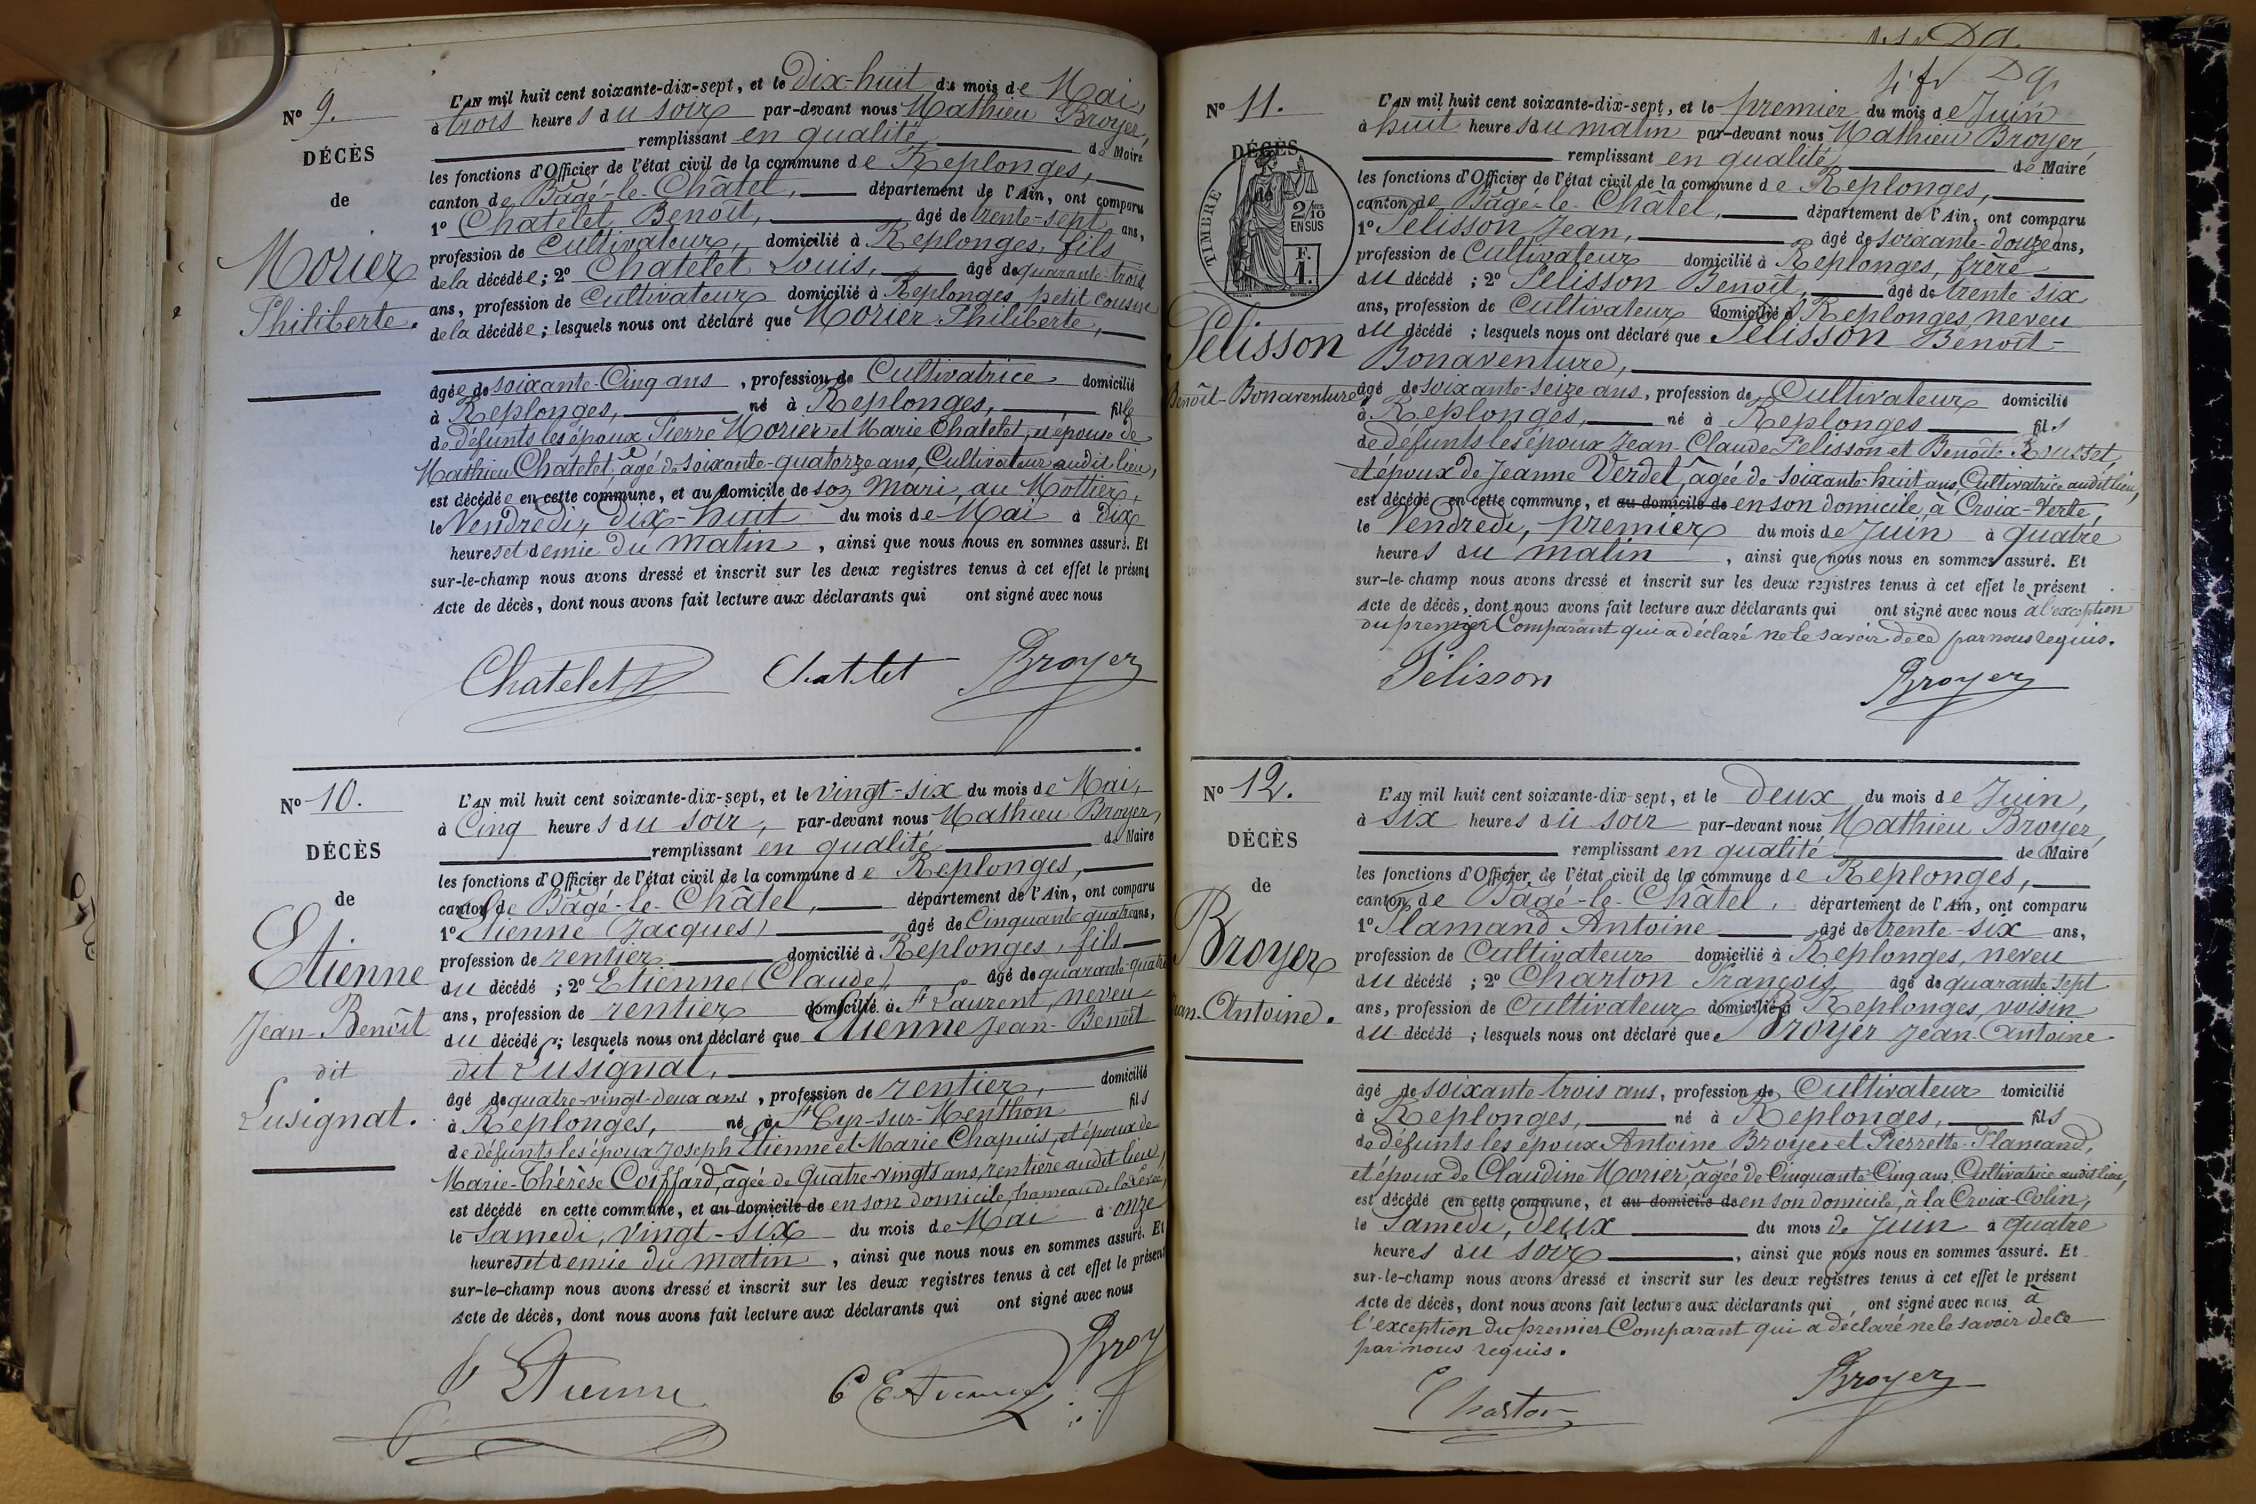 Nº 9.
DÉCÈS
de
Morier
Philiberte.
L'AN mil huit cent soixante-dix-sept, et le Dix-huit du mois de Mai,
à trois heures du soir par-devant nous Mathieu Broyer,
remplissant en qualité de Maire
les fonctions d'Officier de l'état civil de la commune de Replonges,
canton de Bâgé-le-Châtel, département de l'Ain, ont comparu
1º Chatelet Benoît, âgé de trente-sept ans,
profession de Cultivateur, domicilié à Replonges, fils
de la décédée ; 2º Chatelet Louis, âgé de quarante-trois
ans, profession de Cultivateur domicilié à Replonges, petit cousin
de la décédée ; lesquels nous ont déclaré que Morier Philiberte,
âgée de soixante-Cinq ans, profession de Cultivatrice domicilié
à Replonges, né à Replonges, fille
de défunts les époux Pierre Morier et Marie Chatelet, et épouse de
Mathieu Chatelet, âgé de soixante-quatorze ans, Cultivateur audit lieu,
est décédée en cette commune, et au domicile de son mari, au Mottier,
le Vendredi, dix-huit du mois de Mai à dix
heures et demie du matin, ainsi que nous nous en sommes assuré. Et
sur-le-champ nous avons dressé et inscrit sur les deux registres tenus à cet effet le présent
Acte de décès, dont nous avons fait lecture aux déclarants qui ont signé avec nous
Chatelet Chatlet Broyer
Nº 10.
DÉCÈS
de
Etienne
Jean-Benoît
dit
Lusignat.
L'AN mil huit cent soixante-dix-sept, et le vingt-six du mois de Mai,
à Cinq heures du soir, par-devant nous Mathieu Broyer,
remplissant en qualité de Maire
les fonctions d'Officier de l'état civil de la commune de Replonges,
canton de Bâgé-le-Châtel, département de l'Ain, ont comparu
1º Etienne Jacques, âgé de Cinquante-quatre ans,
profession de rentier domicilié à Replonges, fils
du décédé ; 2º Etienne Claude, âgé de quarante-quatre
ans, profession de rentier domicilié à St Laurent, neveu
du décédé ; lesquels nous ont déclaré que Etienne Jean-Benoît
dit Lusignat,
âgé de quatre-vingt-deux ans, profession de rentier, domicilié
à Replonges, né à St Cyr-sur-Menthon fils
de défunts les époux Joseph Etienne et Marie Chapuis, et époux de
Marie-Thérèse Coiffard, âgée de quatre-vingts ans, rentière audit lieu,
est décédé en cette commune, et au domicile de en son domicile, hameau de
le Samedi, vingt-six du mois de Mai à onze
heures et demie du matin, ainsi que nous nous en sommes assuré. Et
sur-le-champ nous avons dressé et inscrit sur les deux registres tenus à cet effet le présent
Acte de décès, dont nous avons fait lecture aux déclarants qui ont signé avec nous
Etienne C Etienne Broy
Nº 11.
DÉCÈS
de
TIMBRE
2/10 EN SUS
F. 1.
Pélisson
Benoît-Bonaventure
L'AN mil huit cent soixante-dix-sept, et le premier du mois de Juin
à huit heures du matin par-devant nous Mathieu Broyer
remplissant en qualité de Maire
les fonctions d'Officier de l'état civil de la commune de Replonges,
canton de Bâgé-le-Châtel, département de l'Ain, ont comparu
1º Pélisson Jean, âgé de soixante-douze ans,
profession de Cultivateur domicilié à Replonges, frère
du décédé ; 2º Pélisson Benoît, âgé de trente-six
ans, profession de Cultivateur domicilié à Replonges neveu
du décédé ; lesquels nous ont déclaré que Pélisson Benoît-
Bonaventure,
âgé de soixante-seize ans, profession de Cultivateur domicilié
à Replonges, né à Replonges fils
de défunts les époux Jean-Claude Pelisson et Benoîte Rousset,
et époux de Jeanne Verdet, âgée de soixante-huit ans, Cultivatrice audit lieu,
est décédé en cette commune, et au domicile de en son domicile, à Croix-Verte,
le Vendredi, premier du mois de Juin à quatre
heures du matin, ainsi que nous nous en sommes assuré. Et
sur-le-champ nous avons dressé et inscrit sur les deux registres tenus à cet effet le présent
Acte de décès, dont nous avons fait lecture aux déclarants qui ont signé avec nous à l'exception
du premier Comparant qui a déclaré ne le savoir de ce par nous requis.
Pélisson Broyer
Nº 12.
DÉCÈS
de
Broyer
Jean-Antoine.
L'AN mil huit cent soixante-dix-sept, et le deux du mois de Juin,
à six heures du soir par-devant nous Mathieu Broyer,
remplissant en qualité de Maire
les fonctions d'Officier de l'état civil de la commune de Replonges,
canton de Bâgé-le-Châtel, département de l'Ain, ont comparu
1º Flamand Antoine âgé de trente-six ans,
profession de Cultivateur domicilié à Replonges, neveu
du décédé ; 2º Charton François, âgé de quarante-sept
ans, profession de Cultivateur domicilié à Replonges, voisin
du décédé ; lesquels nous ont déclaré que Broyer Jean-Antoine
âgé de soixante-trois ans, profession de Cultivateur domicilié
à Replonges, né à Replonges, fils
de défunts les époux Antoine Broyer et Pierrette Flamand,
et époux de Claudine Morier, âgée de Cinquante-Cinq ans, Cultivatrice audit lieu,
est décédé en cette commune, et au domicile de en son domicile, à la Croix-Colin,
le Samedi, deux du mois de Juin à quatre
heures du soir, ainsi que nous nous en sommes assuré. Et
sur-le-champ nous avons dressé et inscrit sur les deux registres tenus à cet effet le présent
Acte de décès, dont nous avons fait lecture aux déclarants qui ont signé avec nous à
l'exception du premier Comparant qui a déclaré ne le savoir de ce
par nous requis.
Charton Broyer